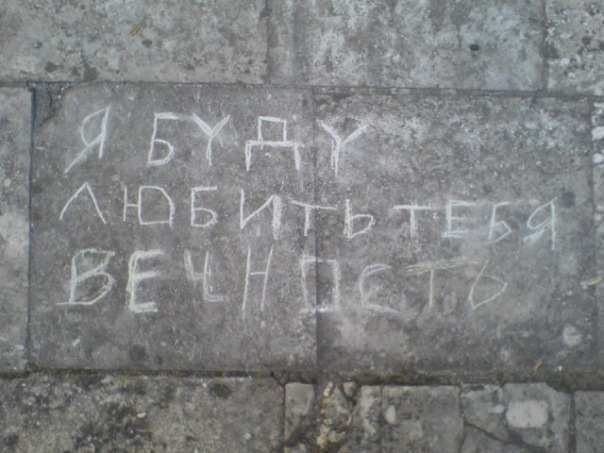 Я БУДУ
ЛЮБИТЬ ТЕБЯ
ВЕЧНОСТЬ